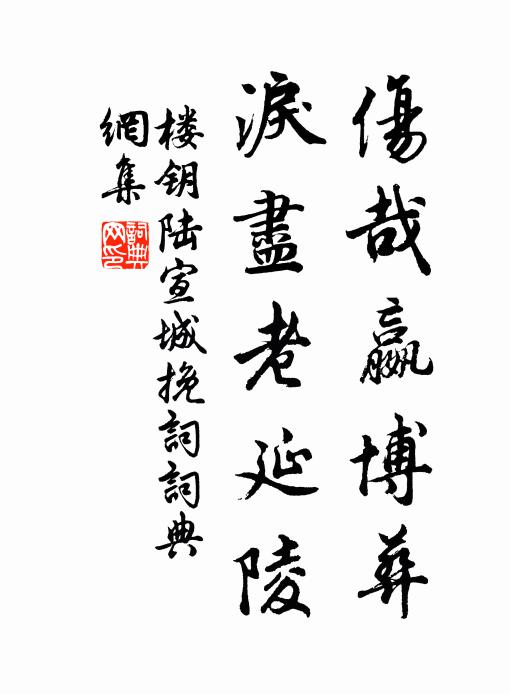 傷哉嬴博葬
淚盡老延陵
楼钥陆宣城挽詞詞典
網集
詞典网印